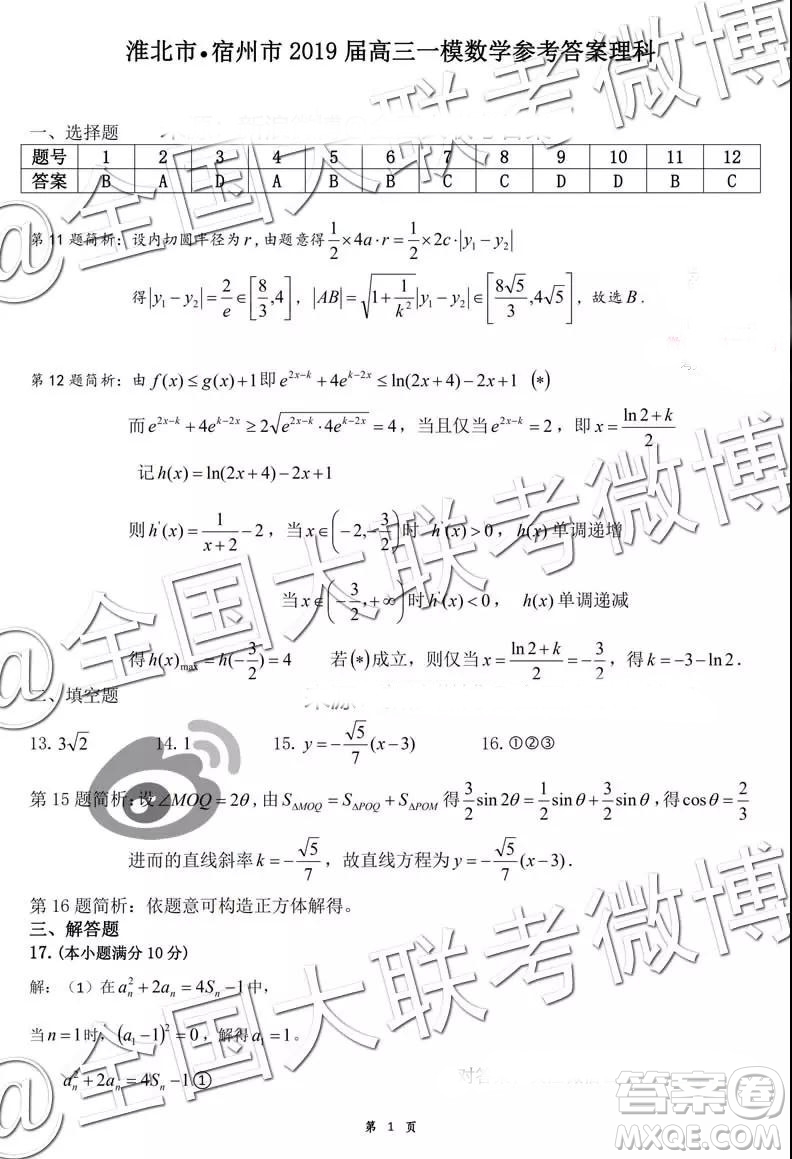 淮北市•宿州市 2019 届高三一模数学参考答案理科
一、选择题
题号 1 2 3 4 5 6 7 8 9 10 11 12
答案 B A D A B B C C D D B C
第 11 题简析：设内切圆半径为 r，由题意得 1/2×4a·r=1/2×2c·|y₁−y₂|
得|y₁−y₂|=2/e∈[8/3,4]，|AB|=√(1+1/k²)|y₁−y₂|∈[8√5/3,4√5]，故选 B．
第 12 题简析：由 f(x)≤g(x)+1 即 e^(2x−k)+4e^(k−2x)≤ln(2x+4)−2x+1 (*)
而 e^(2x−k)+4e^(k−2x)≥2√(e^(2x−k)·4e^(k−2x))=4，当且仅当 e^(2x−k)=2，即 x=(ln2+k)/2
记 h(x)=ln(2x+4)−2x+1
则 h'(x)=1/(x+2)−2，当 x∈(−2,−3/2)时 h'(x)>0，h(x)单调递增
当 x∈(−3/2,+∞)时 h'(x)<0， h(x)单调递减
得 h(x)max=h(−3/2)=4 若(*)成立，则仅当 x=(ln2+k)/2=−3/2，得 k=−3−ln2．
二、填空题
13. 3√2 14. 1 15. y=−√5/7(x−3) 16. ①②③
第 15 题简析：设∠MOQ=2θ，由 S△MOQ=S△POQ+S△POM 得 3/2sin2θ=1/2sinθ+3/2sinθ，得 cosθ=2/3
进而的直线斜率 k=−√5/7，故直线方程为 y=−√5/7(x−3)．
第 16 题简析：依题意可构造正方体解得。
三、解答题
17. (本小题满分 10 分)
解：（1）在 aₙ²+2aₙ=4Sₙ−1 中，
当 n=1 时，(a₁−1)²=0，解得 a₁=1。
aₙ²+2aₙ=4Sₙ−1①
第 1 页
@全国大联考微博
@全国大联考微博
@全国大联考微博
答案卷
MXQE.COM